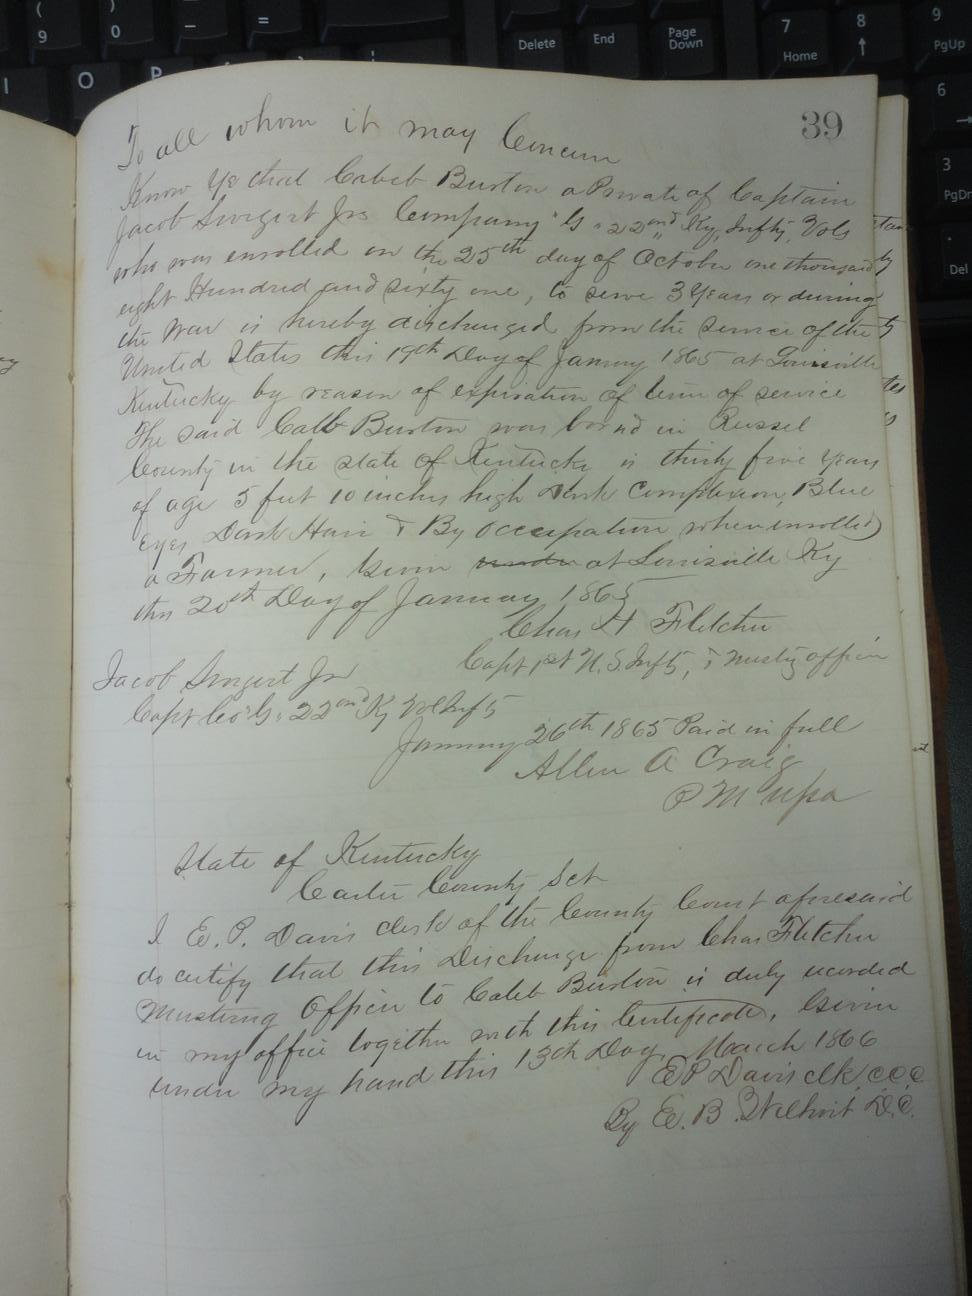 39
To all whom it may Concern
Know Ye that Caleb Burton a Private of Captain
Jacob Swigert Jrs Company "G" 22nd Ky, Infty, Vols
who was enrolled on the 25th day of October one thousand
eight Hundred and sixty one, to serve 3 Years or during
the War is hereby discharged from the service of the
United States this 19th Day of January 1865 at Louisville
Kentucky by reason of expiration of term of service
The said Calb Burton was born in Russel
County in the state of Kentucky is thirty five years
of age 5 feet 10 inches high Dark Complexion, Blue
eyes, Dark Hair & By occupation when enrolled)
a Farmer, Given under at Louisville Ky
this 20th Day of January 1865
Chas H Fletcher
Capt 1st U.S. Infty, & Mustg officer
Jacob Swigert Jr
Capt Co "G" 22nd Ky Vol Infty
January 26th 1865 Paid in full
Allen A Craig
P M USA
State of Kentucky
Carter County Sct
I E. P. Davis clerk of the County Court aforesaid
do certify that this Discharge from Chas Fletcher
Mustering Officer to Caleb Burton is duly recorded
in my office together with this Certificate, Given
under my hand this 13th Day, March 1866
E P Davis clk. c c c
By E. B. Wilhoit D. C.
Delete
End
Page
Down
7
Home
8
9
PgUp
6
3
Del
9
0
O
P